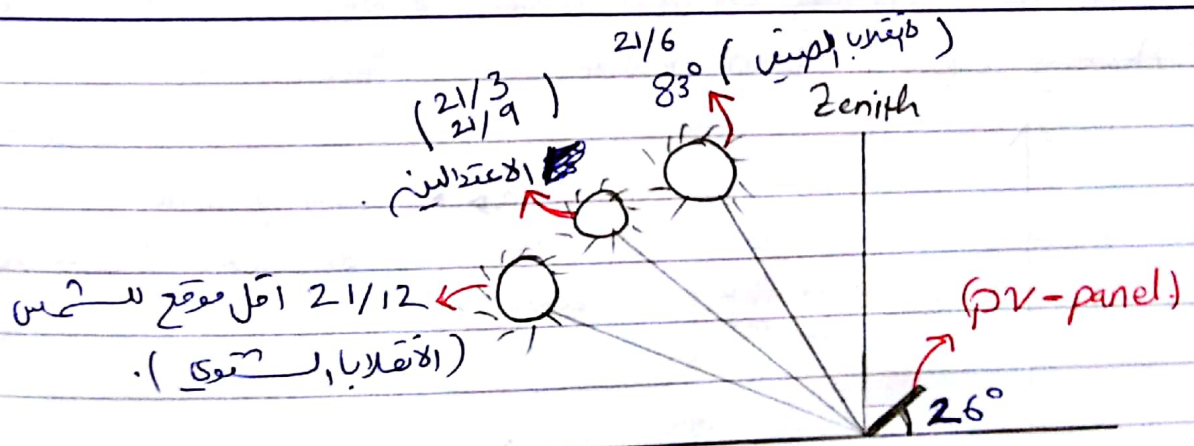 21/6
83° (الانقلاب الصيفي)
Zenith
(21/3
21/9)
الاعتدالين.
21/12 اقل موقع للشمس
(الانقلاب الشتوي).
(PV-panel)
26°